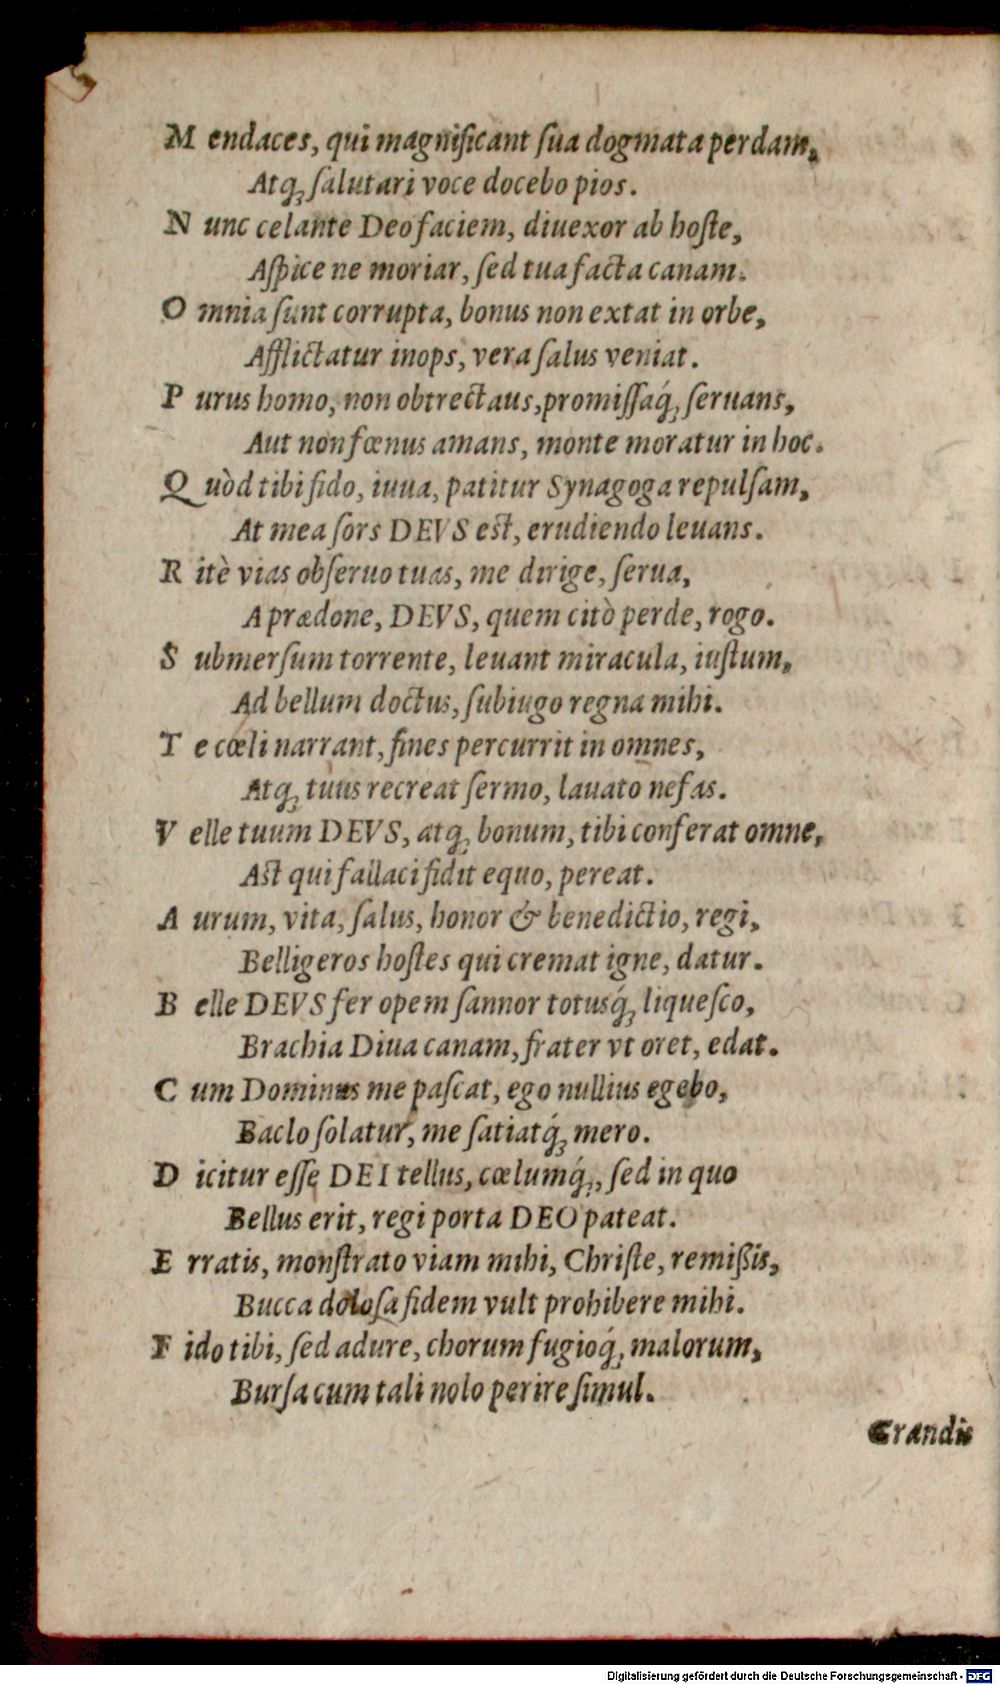 M endaces, qui magnificant ſua dogmata perdam,
Atq; ſalutari voce docebo pios.
N unc celante Deo faciem, diuexor ab hoſte,
Aſpice ne moriar, ſed tua facta canam.
O mnia ſunt corrupta, bonus non extat in orbe,
Afflictatur inops, vera ſalus veniat.
P urus homo, non obtrectaus, promiſſaq́;, ſeruans,
Aut non fœnus amans, monte moratur in hoc.
Q uòd tibi fido, iuua, patitur Synagoga repulſam,
At mea ſors DEVS est, erudiendo leuans.
R itè vias obſeruo tuas, me dirige, ſerua,
A prædone, DEVS, quem citò perde, rogo.
S ubmerſum torrente, leuant miracula, iuſtum,
Ad bellum doctus, ſubiugo regna mihi.
T e cœli narrant, fines percurrit in omnes,
Atq; tuus recreat ſermo, lauato nefas.
V elle tuum DEVS, atq; bonum, tibi conferat omne,
Ast qui fallaci fidit equo, pereat.
A urum, vita, ſalus, honor & benedictio, regi,
Belligeros hoſtes qui cremat igne, datur.
B elle DEVS fer opem ſannor totusq́; liqueſco,
Brachia Diua canam, frater vt oret, edat.
C um Dominus me paſcat, ego nullius egebo,
Baclo ſolatur, me ſatiatq́; mero.
D icitur eſſe DEI tellus, cœlumq́;, ſed in quo
Bellus erit, regi porta DEO pateat.
E rratis, monſtrato viam mihi, Chriſte, remißis,
Bucca doloſa fidem vult prohibere mihi.
F ido tibi, ſed adure, chorum fugioq́; malorum,
Burſa cum tali nolo perire ſimul.
Grandis
Digitalisierung gefördert durch die Deutsche Forschungsgemeinschaft - DFG